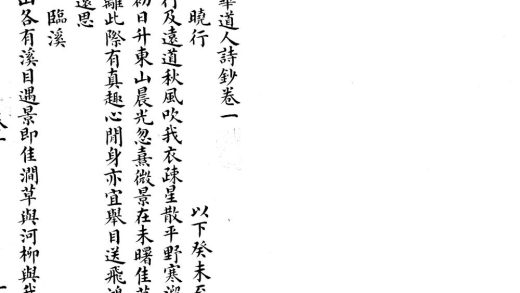 華道人詩鈔卷一
以下癸未至
曉行
行及遠道秋風吹我衣疎星散平野寒
初日升東山晨光忽熹微景在未曙佳
離此際有真趣心閒身亦宜舉目送飛鴻
遠思
臨溪
山各有溪目遇景即佳澗草與河柳與我